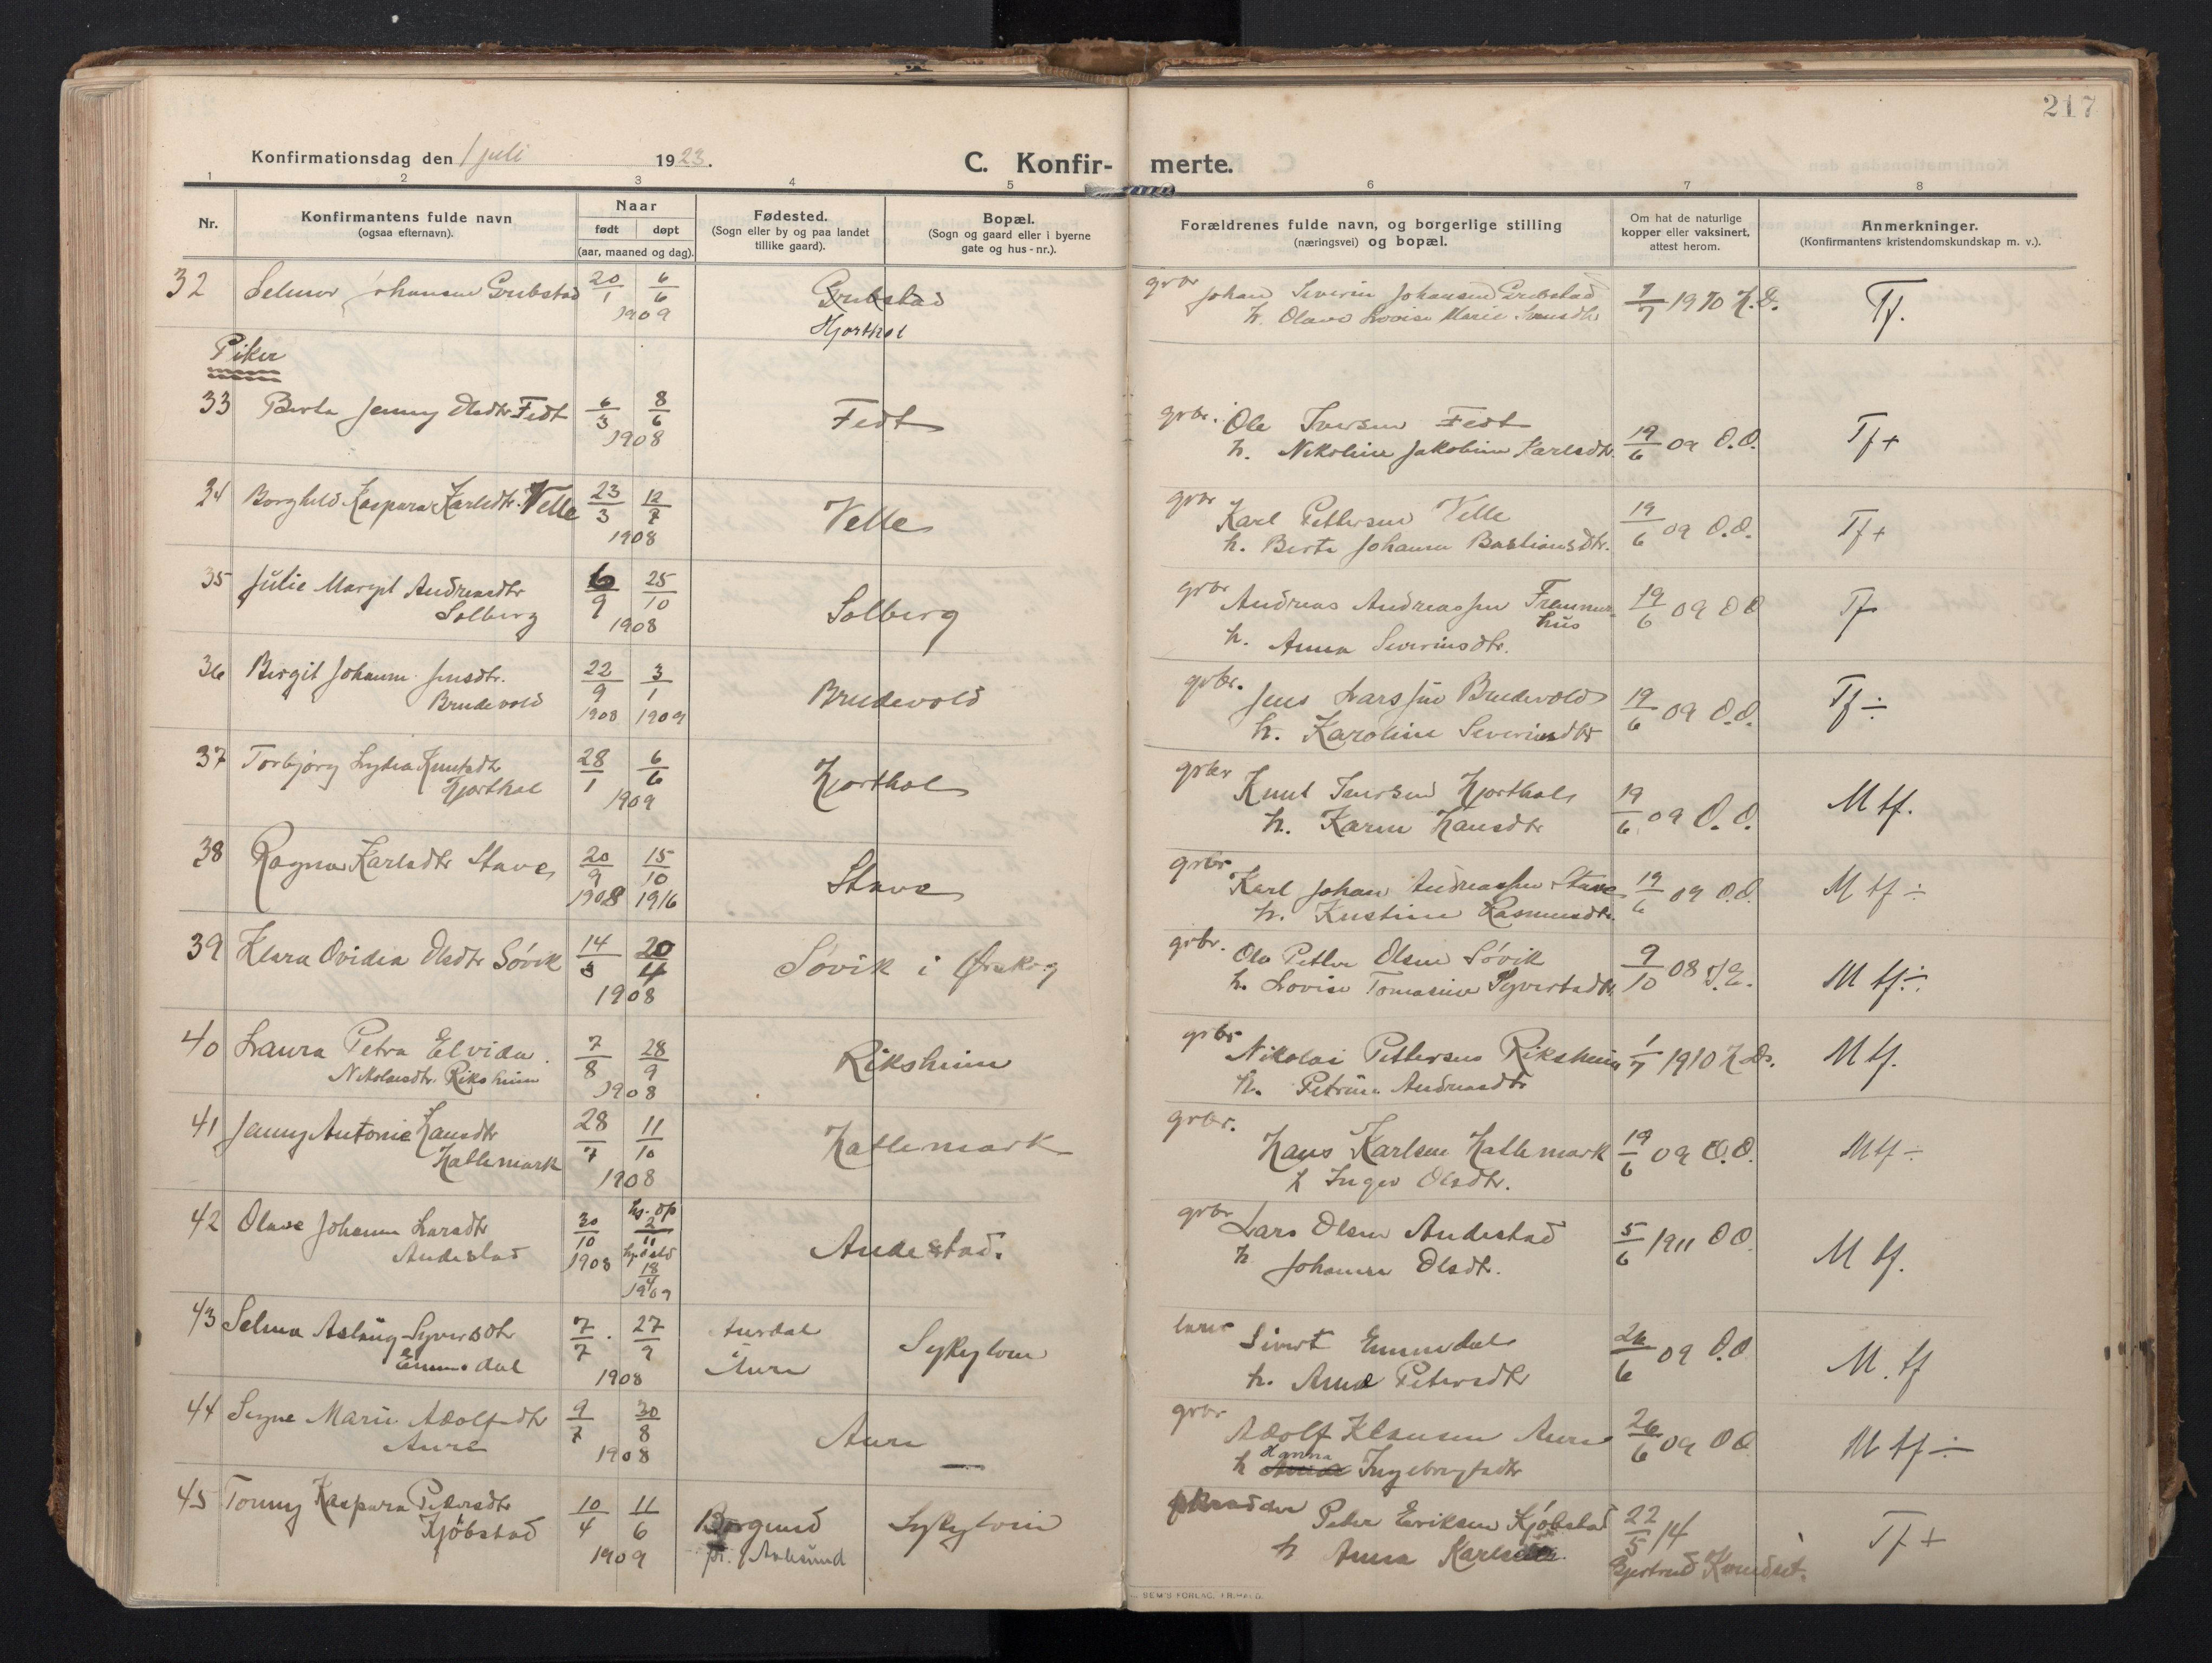 217
Konfirmationsdag den 1 juli 1923.
C. Konfir- merte.
1 2 3 4 5 6 7 8
Nr.
Konfirmantens fulde navn
(ogsaa efternavn).
Naar
født døpt
(aar, maaned og dag).
Fødested.
(Sogn eller by og paa landet
tillike gaard).
Bopæl.
(Sogn og gaard eller i byerne
gate og hus-nr.).
Forældrenes fulde navn, og borgerlige stilling
(næringsvei) og bopæl.
Om hat de naturlige
kopper eller vaksinert,
attest herom.
Anmerkninger.
(Konfirmantens kristendomskundskap m. v.).
32 Selmer Johansen Grebstad 20/1 6/6 1909 Grebstad Hjorthol
grbr Johan Severin Johansen Grebstad
h. Olave Lovise Marie
1/7 1910 K.D. Tf.
Piker
33 Berta Jenny Olsdtr Fedt 6/3 8/6 1908 Fedt
grbr. Ole Iversen Fedt
h. Nikoline Jakobine Karlsdtr. 19/6 09 O.O. Tf +
34 Borghild Kaspara Karlsdtr. Velle 23/3 12/7 1908 Velle
grbr Karl Pettersen Velle
h. Berte Johanne Bastiansdtr. 19/6 09 O.O. Tf +
35 Julie Margit Andreasdtr
Solberg 6/9 25/10 1908 Solberg
grbr Andreas Andreassen Fremmer-
hus
h. Anna Severinsdtr. 19/6 09 O O Tf
36 Bergit Johanne Jensdtr.
Brudevold 22/9 1908 3/1 1909 Brudevold
grbr. Jens Larssen Brudevold
h. Karoline Severinsdtr 19/6 09 O.O. Tf ÷
37 Torbjørg Lydia Knutsdtr
Hjorthol 28/1 6/6 1909 Hjorthol
grbr Knut Iversen Hjorthol
h. Karen Hansdtr 19/6 09 O.O. M tf.
38 Ragna Karlsdtr Stave 20/9 1908 15/10 1916 Stave
grbr Karl Johan Andreassen Stave
h. Kristine Rasmusdtr. 19/6 09 O.O. M tf ÷
39 Klara Ovidia Olsdtr Søvik 14/3 20/4 1908 Søvik i Ørskog
grbr. Ole Petter Olsen Søvik
h. Lovise Tomasine Syvertsdtr 9/10 08 J.E. M tf. ÷
40 Laura Petra Elvida
Nikolaisdtr. Riksheim 7/8 28/9 1908 Riksheim
grbr Nikolai Pettersen Riksheim
h. Petrine Andreasdtr 1/7 1910 K D. M tf.
41 Jenny Antonie Hansdtr
Hattemark 28/7 11/10 1908 Hattemark
grbr. Hans Karlsen Hattemark
h Inger Olsdtr. 19/6 09 O.O. M tf ÷
42 Olave Johanne Larsdtr
Andestad 30/10 1908 hj. dp 2/11 18/4 1909 Andestad.
grbr Lars Olsen Andestad
h Johanne Olsdtr. 5/6 1911 O O. M tf.
43 Selma Aslaug Syversdtr
Emmedal 7/7 27/9 1908 Aurdal
Aure Sykylven
lærer Sivert Emmedal
h. Anne Petersdtr 26/6 09 O.O M. tf
44 Signe Marie Adolfsdtr
Aure 9/7 30/8 1908 Aure
grbr Adolf Klausen Aure
h Hanna Ingebrigtsdtr 26/6 09 O O. M tf ÷
45 Tonny Kaspara Petersdtr
Kjøbstad 10/4 11/6 1909 Borgund
pr. Aalesund Sykylven
skrædder Peter Eriksen Kjøbstad
h Anna Karlsdtr. 22/5 14
Gjertrud Knudset. Tf +
SEM'S FORLAG, FR.HALD.